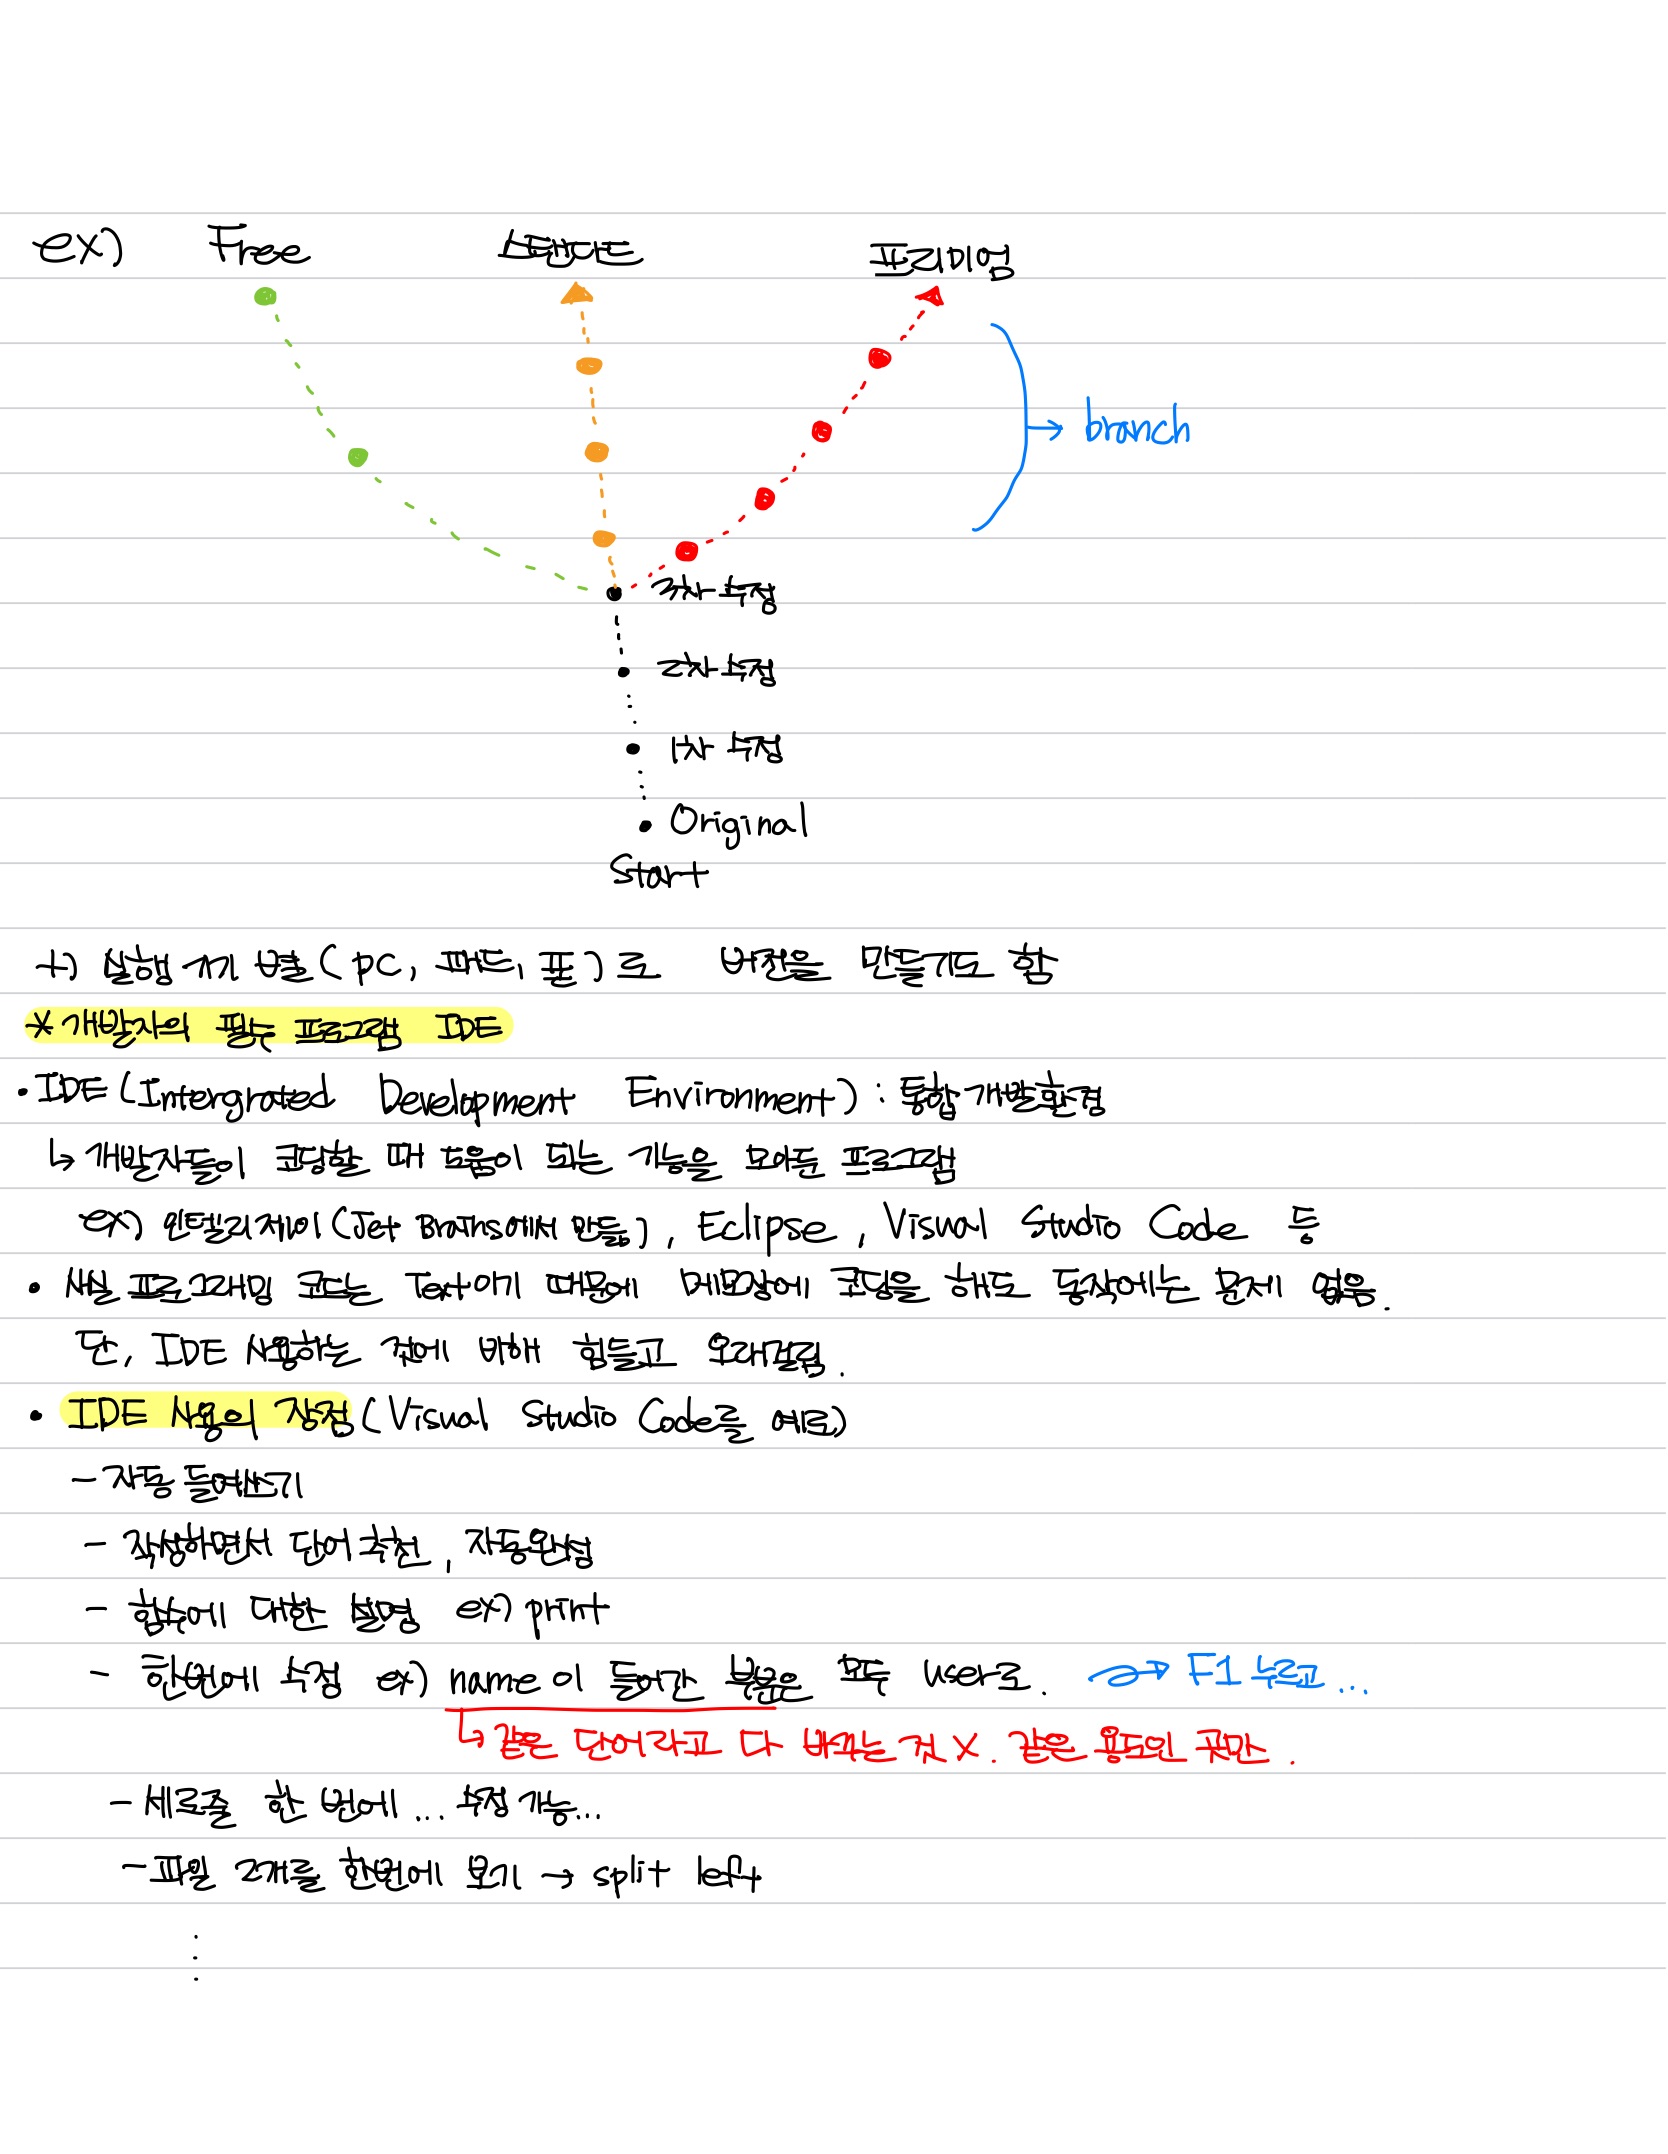 ex) Free 스탠다드 프리미엄
branch
3차 수정
2차 수정
1차 수정
Original
Start
+) 실행 기기 별(pc, 패드, 폰)로 버전을 만들기도 함
*개발자의 필수 프로그램 IDE
• IDE (Intergrated Development Environment) : 통합개발환경
↳ 개발자들이 코딩할 때 도움이 되는 기능을 모아둔 프로그램
ex) 인텔리제이(Jet Brains에서 만듦), Eclipse, Visual Studio Code 등
• 사실 프로그래밍 코드는 Text이기 때문에 메모장에 코딩을 해도 동작에는 문제 없음.
단, IDE 사용하는 것에 비해 힘들고 오래걸림.
• IDE 사용의 장점(Visual Studio Code를 예로)
- 자동 들여쓰기
- 작성하면서 단어 추천, 자동완성
- 함수에 대한 설명 ex) print
- 한번에 수정 ex) name이 들어간 부분은 모두 user로. → F1 누르고...
↳ 같은 단어라고 다 바꾸는 것 X. 같은 용도인 곳만.
- 세로줄 한 번에... 수정 가능...
- 파일 2개를 한번에 보기 → split left
⋮